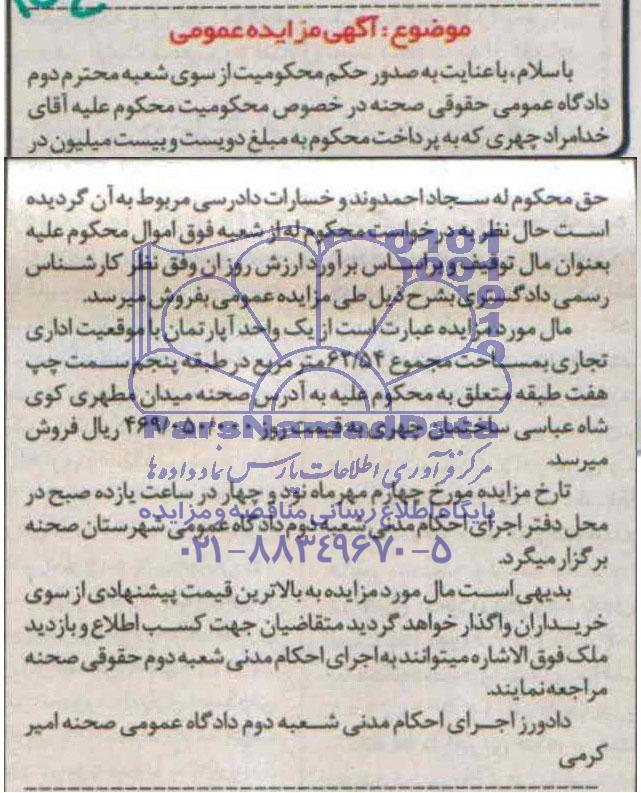 موضوع: آگهی مزایده عمومی
باسلام، باعنایت به صدور حکم محکومیت از سوی شعبه محترم دوم
دادگاه عمومی حقوقی صحنه در خصوص محکومیت محکوم علیه آقای
خدامراد چهری که به پرداخت محکوم به مبلغ دویست و بیست میلیون در
حق محکوم له سجاد احمدوند و خسارات دادرسی مربوط به آن گردیده
است حال نظر به درخواست محکوم له از شعبه فوق اموال محکوم علیه
بعنوان مال توقیف و براساس برآورد ارزش روز ان وفق نظر کارشناس
رسمی دادگستری بشرح ذیل طی مزایده عمومی بفروش میرسد.
مال مورد مزایده عبارت است از یک واحد آپارتمان با موقعیت اداری
تجاری بمساحت مجموع ۶۲/۵۴ متر مربع در طبقه پنجم سمت چپ
هفت طبقه متعلق به محکوم علیه به آدرس صحنه میدان مطهری کوی
شاه عباسی ساختمان چهری به قیمت روز ۴۶۹/۰۵۰/۰۰۰ ریال فروش
میرسد.
تارخ مزایده مورخ چهارم مهرماه نود و چهار در ساعت یازده صبح در
محل دفتر اجرای احکام مدنی شعبه دوم دادگاه عمومی شهرستان صحنه
برگزار میگرد.
بدیهی است مال مورد مزایده به بالاترین قیمت پیشنهادی از سوی
خریداران واگذار خواهد گردید متقاضیان جهت کسب اطلاع و بازدید
ملک فوق الاشاره میتوانند به اجرای احکام مدنی شعبه دوم حقوقی صحنه
مراجعه نمایند.
دادورز اجرای احکام مدنی شعبه دوم دادگاه عمومی صحنه امیر
کرمی
ParsNamadData
مرکز فرآوری اطلاعات پارس نماد داده ها
پایگاه اطلاع رسانی مناقصه و مزایده
۰۲۱-۸۸۳۴۹۶۷۰-۵